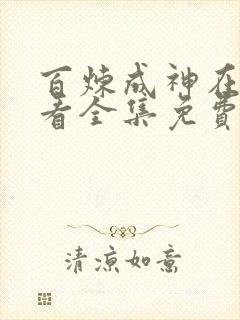 百炼成神在
看全集免費
清凉如意